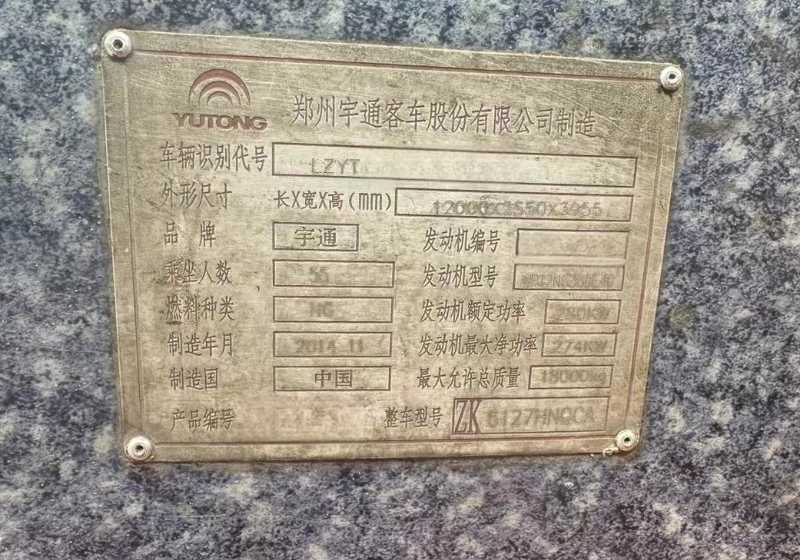 YUTONG 郑州宇通客车股份有限公司制造
车辆识别代号 LZYT
外形尺寸 长X宽X高(mm)
品牌 宇通 发动机编号
乘坐人数 55 发动机型号
燃料种类 NG 发动机额定功率 280KW
制造年月 2014.11 发动机最大净功率 274KW
制造国 中国 最大允许总质量 18000kg
产品编号 整车型号 ZK 6127HNQCA